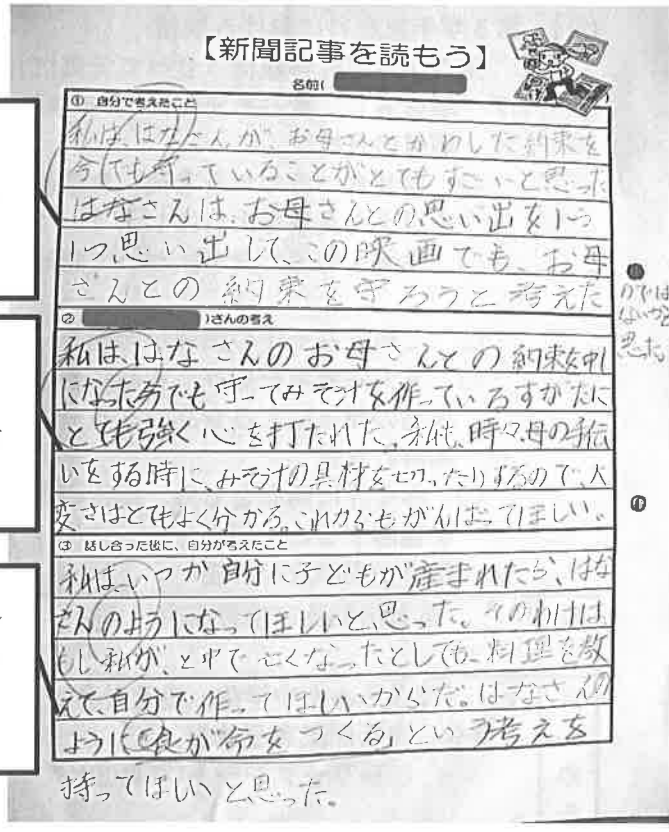 【新聞記事を読もう】
名前(
① 自分で考えたこと
私は、はなさんが、お母さんとかわした約束を
今でも守っていることがとてもすごいと思った
はなさんは、お母さんとの思い出を1つ
1つ思い出して、この映画でも、お母
さんとの約束を守ろうと考えた
のでは
ないかと
思った。
② )さんの考え
私は、はなさんのお母さんとの約束を中1
になった今でも守ってみそ汁を作っているすがたに
とても強く心を打たれた。私も、時々、母の手伝
いをする時に、みそ汁の具材を切ったりするので、大
変さはとてもよく分かる。これからもがんばってほしい。
③ 話し合った後に、自分が考えたこと
私は、いつか自分に子どもが産まれたら、はな
さんのようになってほしいと、思った。そのわけは
もし私が、と中で亡くなったとしても、料理を教
えて、自分で作ってほしいからだ。はなさんの
ように「食が命をつくる」という考えを
持ってほしいと思った。